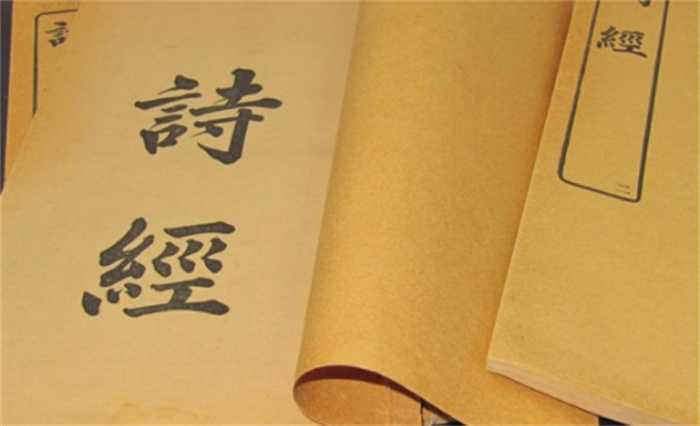 詩
經
經
二